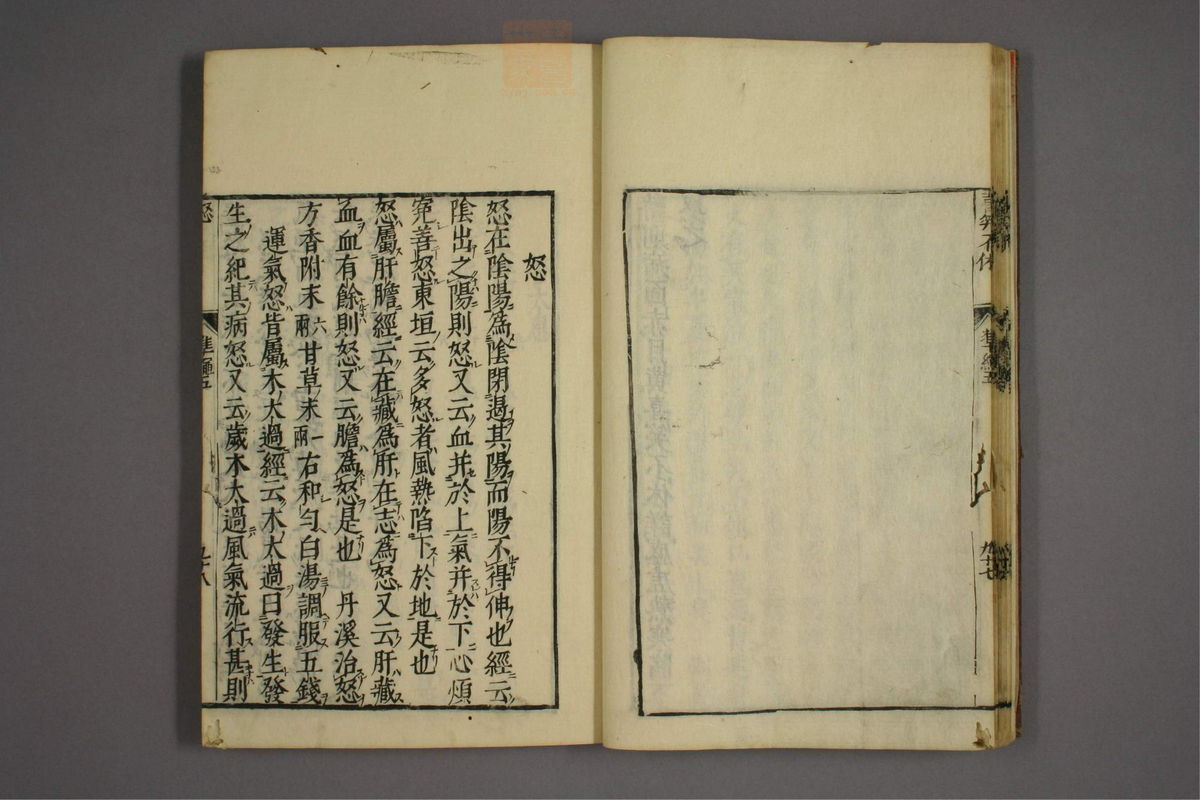 喜笑不休
準繩五
九十七
怒
怒在陰陽爲陰閉遏其陽而陽不得伸也經云
陰出之陽則怒又云血并於上氣并於下心煩
寃善怒東垣云多怒者風熱陷下於地是也
怒屬肝膽經云在藏爲肝在志爲怒又云肝藏
血血有餘則怒又云膽爲怒是也 丹溪治怒
方香附末六兩甘草末一兩右和勻白湯調服五錢
運氣怒皆屬木太過經云木太過曰發生發
生之紀其病怒又云歲木太過風氣流行甚則
怒
準繩五
九十八